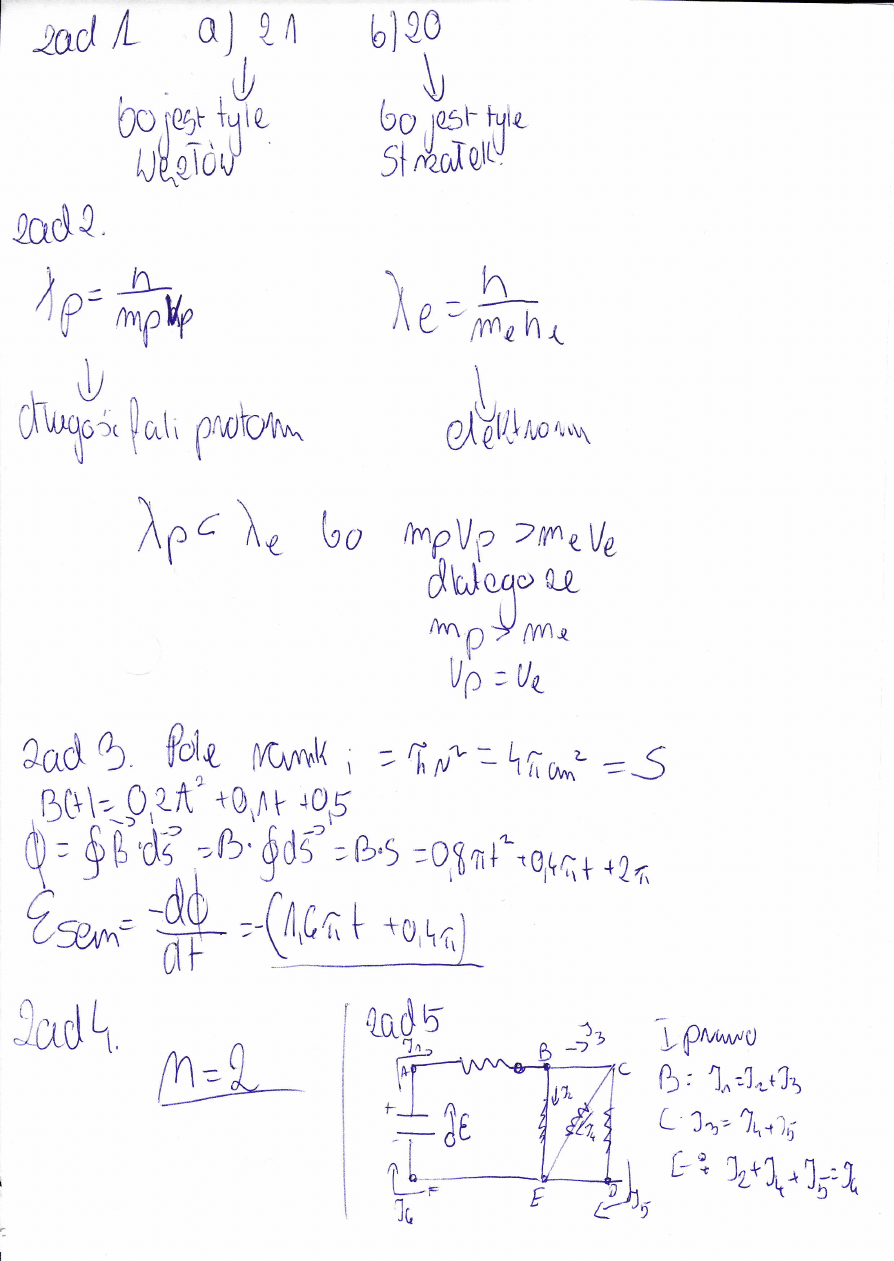 zad 1 a) 21 b) 20
bo jest tyle węzłów
bo jest tyle strzałek
zad 2.
λp = h / mpVp
λe = h / mehe
długość fali protonu
elektronu
λp < λe bo mpVp > meVe
dlatego że
mp > me
Vp = Ve
zad 3. Pole ramki = πr² = 4πcm² = S
B(t) = 0,2t² + 0,1t + 0,5
ϕ = ∮B⃗·ds⃗ = B·∮ds⃗ = B·S = 0,8πt² + 0,4πt + 2π
Ɛsem = -dϕ / dt = -(1,6πt + 0,4π)
zad 4.
n = 2
zad 5
I1
A
B
I3
C
+
-
E
I2
I4
I6
F
E
D
I5
I prawo
B: I1 = I2 + I3
C: I3 = I4 + I5
E: I2 + I4 + I5 = I6